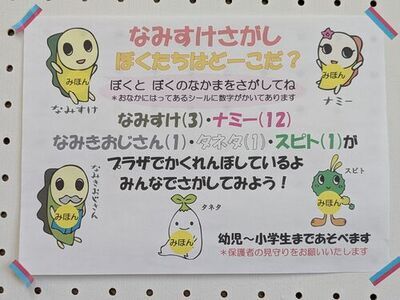 なみすけさがし
ぼくたちはどーこだ？
ぼくと ぼくのなかまをさがしてね
*おなかにはってあるシールに数字がかいてあります
なみすけ(3)・ナミー(12)
なみきおじさん(1)・タネタ(1)・スピト(1)が
プラザでかくれんぼしているよ
みんなでさがしてみよう！
幼児～小学生まであそべます
*保護者の見守りをお願いいたします
みほん
なみすけ
みほん
ナミー
みほん
なみきおじさん
みほん
タネタ
みほん
スピト